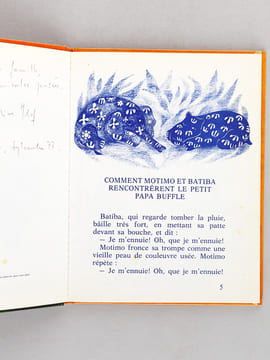 COMMENT MOTIMO ET BATIBA
RENCONTRÈRENT LE PETIT
PAPA BUFFLE
Batiba, qui regarde tomber la pluie,
bâille très fort, en mettant sa patte
devant sa bouche, et dit :
— Je m'ennuie! Oh, que je m'ennuie!
Motimo fronce sa trompe comme une
vieille peau de couleuvre usée. Motimo
répète :
— Je m'ennuie! Oh, que je m'ennuie!
5